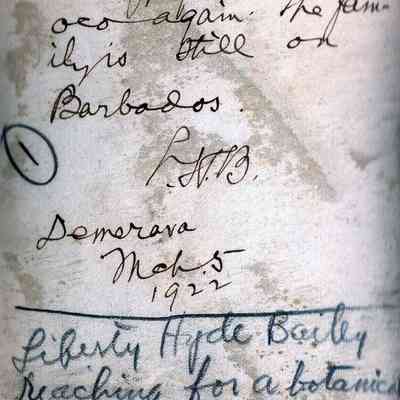 oco again. The fam-
ily is still on
Barbados.
1
L.H.B.
Demerara
Mch. 5
1922
Liberty Hyde Bailey
reaching for a botanical